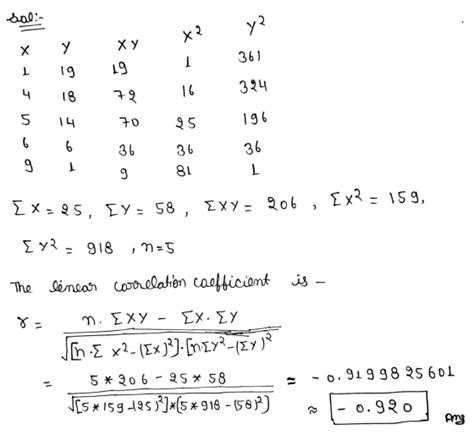 Sol:-
X Y XY X² Y²
1 19 19 1 361
4 18 72 16 324
5 14 70 25 196
6 6 36 36 36
9 1 9 81 1
ΣX = 25, ΣY = 58, ΣXY = 206, ΣX² = 159,
ΣY² = 918, n=5
The linear correlation coefficient is -
r = n. ΣXY - ΣX. ΣY / √[n.Σ X² - (ΣX)²].[nΣY² - (ΣY)²
= 5*206 - 25*58 / √[5*159 - (25)²]*(5*918 - (58)²) = -0.9199825601
≈ -0.920 Ans